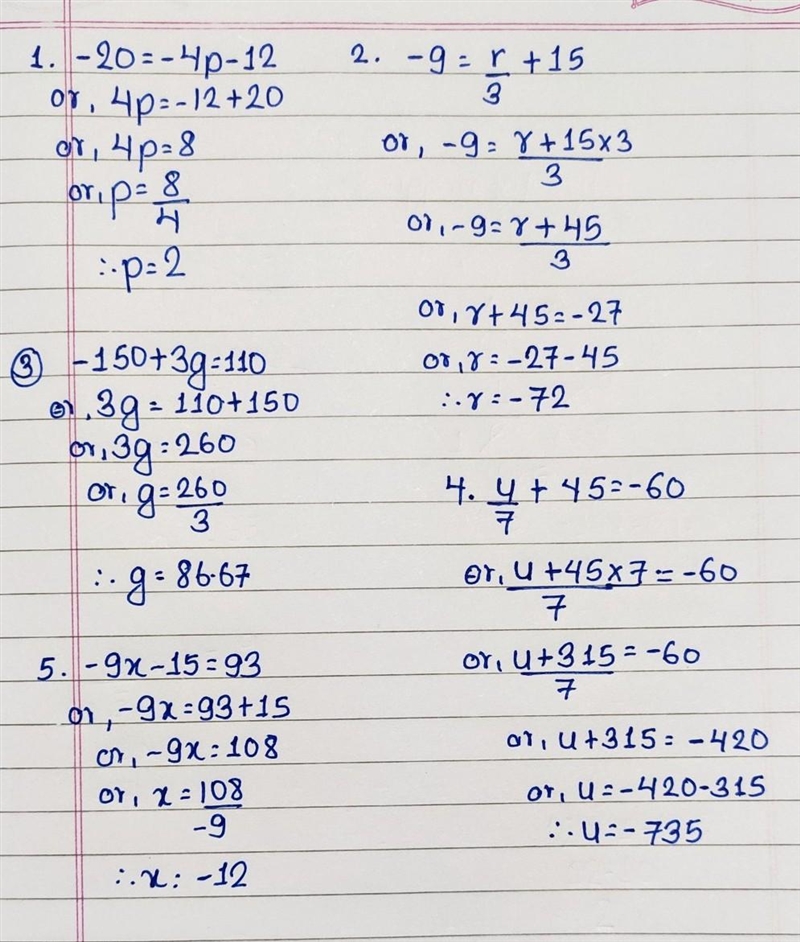 1. -20=-4p-12
or, 4p=-12+20
or, 4p=8
or, p=8/4
∴p=2
2. -9=r/3+15
or, -9=(r+15×3)/3
or, -9=(r+45)/3
or, r+45=-27
or, r=-27-45
∴r=-72
③ -150+3g=110
or, 3g=110+150
or, 3g=260
or, g=260/3
∴ g=86.67
4. u/7+45=-60
or, (u+45×7)/7=-60
or, (u+315)/7=-60
or, u+315=-420
or, u=-420-315
∴u=-735
5. -9x-15=93
or, -9x=93+15
or, -9x=108
or, x=108/-9
∴x: -12